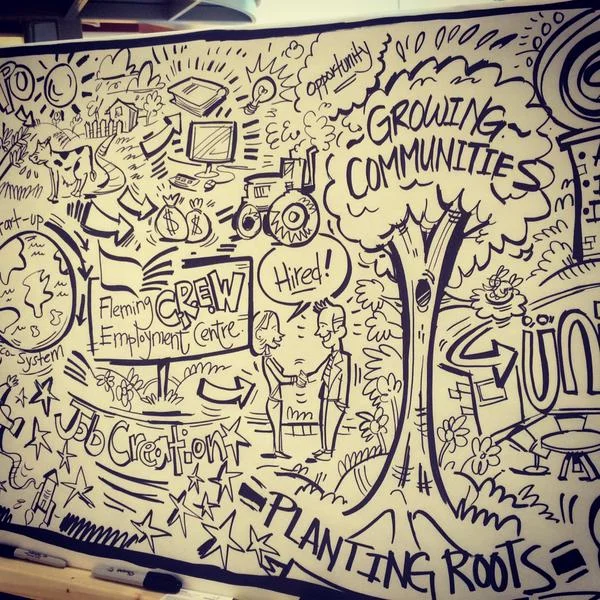 opportunity
~GROWING~
COMMUNITIES
art-up
Hired!
Fleming CREW
Employment Centre
co-System
Job Creation
-PLANTING ROOTS-